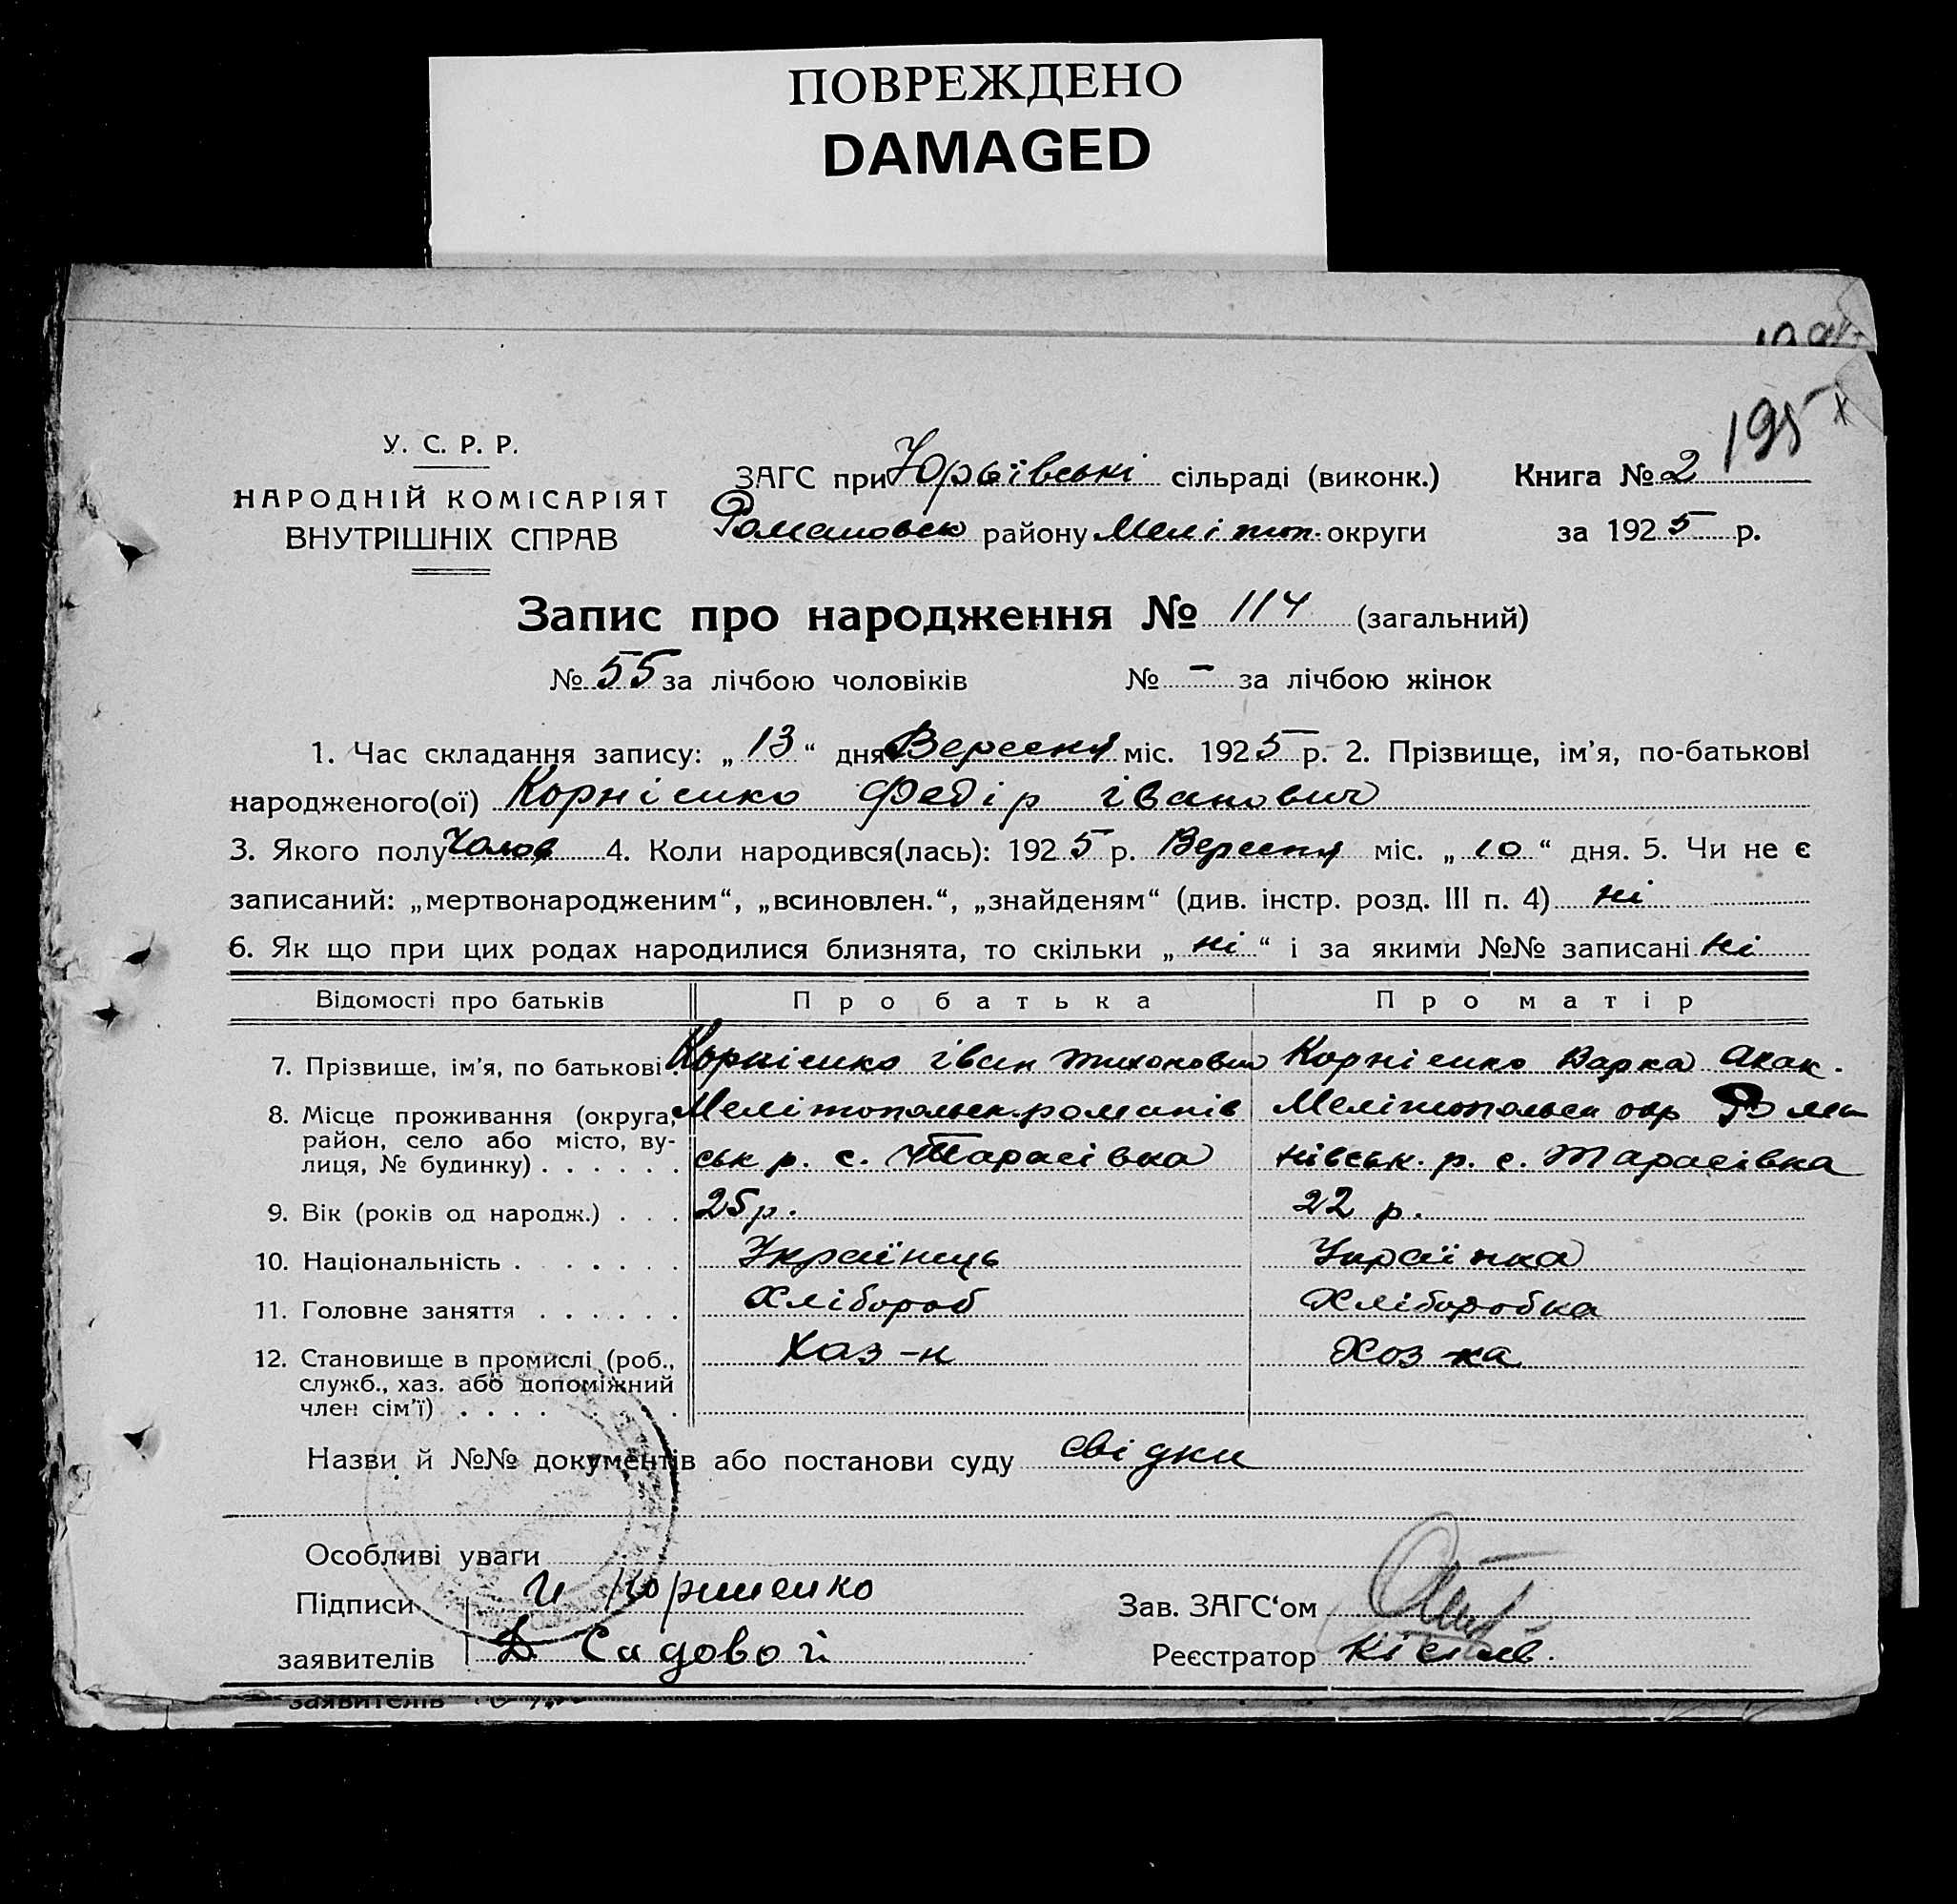 ПОВРЕЖДЕНО
DAMAGED
195
У. С. Р. Р.
НАРОДНІЙ КОМІСАРІЯТ
ВНУТРІШНІХ СПРАВ
ЗАГС при Юрьївські сільраді (виконк.)
Романовск району Мелітоп. округи
Книга № 2
за 1925 р.
Запис про народження № 114 (загальний)
№ 55 за лічбою чоловіків № – за лічбою жінок
1. Час складання запису: „ 13 “ дня Вересня міс. 1925 р. 2. Прізвище, ім’я, по-батькові
народженого(ої) Корнієнко Федір іванович
3. Якого полу Чолов 4. Коли народився(лась): 1925 р. Вересня міс. „ 10 “ дня. 5. Чи не є
записаний: „мертвонародженим“, „всиновлен.“, „знайденям“ (див. інстр. розд. III п. 4) ні
6. Як що при цих родах народилися близнята, то скільки „ ні “ і за якими №№ записані ні
Відомості про батьків Про батька Про матір
7. Прізвище, ім’я, по батькові Корнієнко іван Тихонович Корнієнко Варка Акак.
8. Місце проживання (округа, район, село або місто, вулиця, № будинку) Мелітопольск. романів
ськ р. с. Тарасівка
Мелітопольск окр Рома
нівськ. р. с. Тарасівка
9. Вік (років од народж.) 25 р. 22 р.
10. Національність Українець Українка
11. Головне заняття Хлібороб Хліборобка
12. Становище в промислі (роб., служб., хаз. або допоміжний член сім’ї) Хаз-н Хоз-ка
Назви й №№ документів або постанови суду свідки
Особливі уваги
Підписи И Корниенко Зав. ЗАГС‘ом
заявителів Д Садовой Реєстратор
заявителів